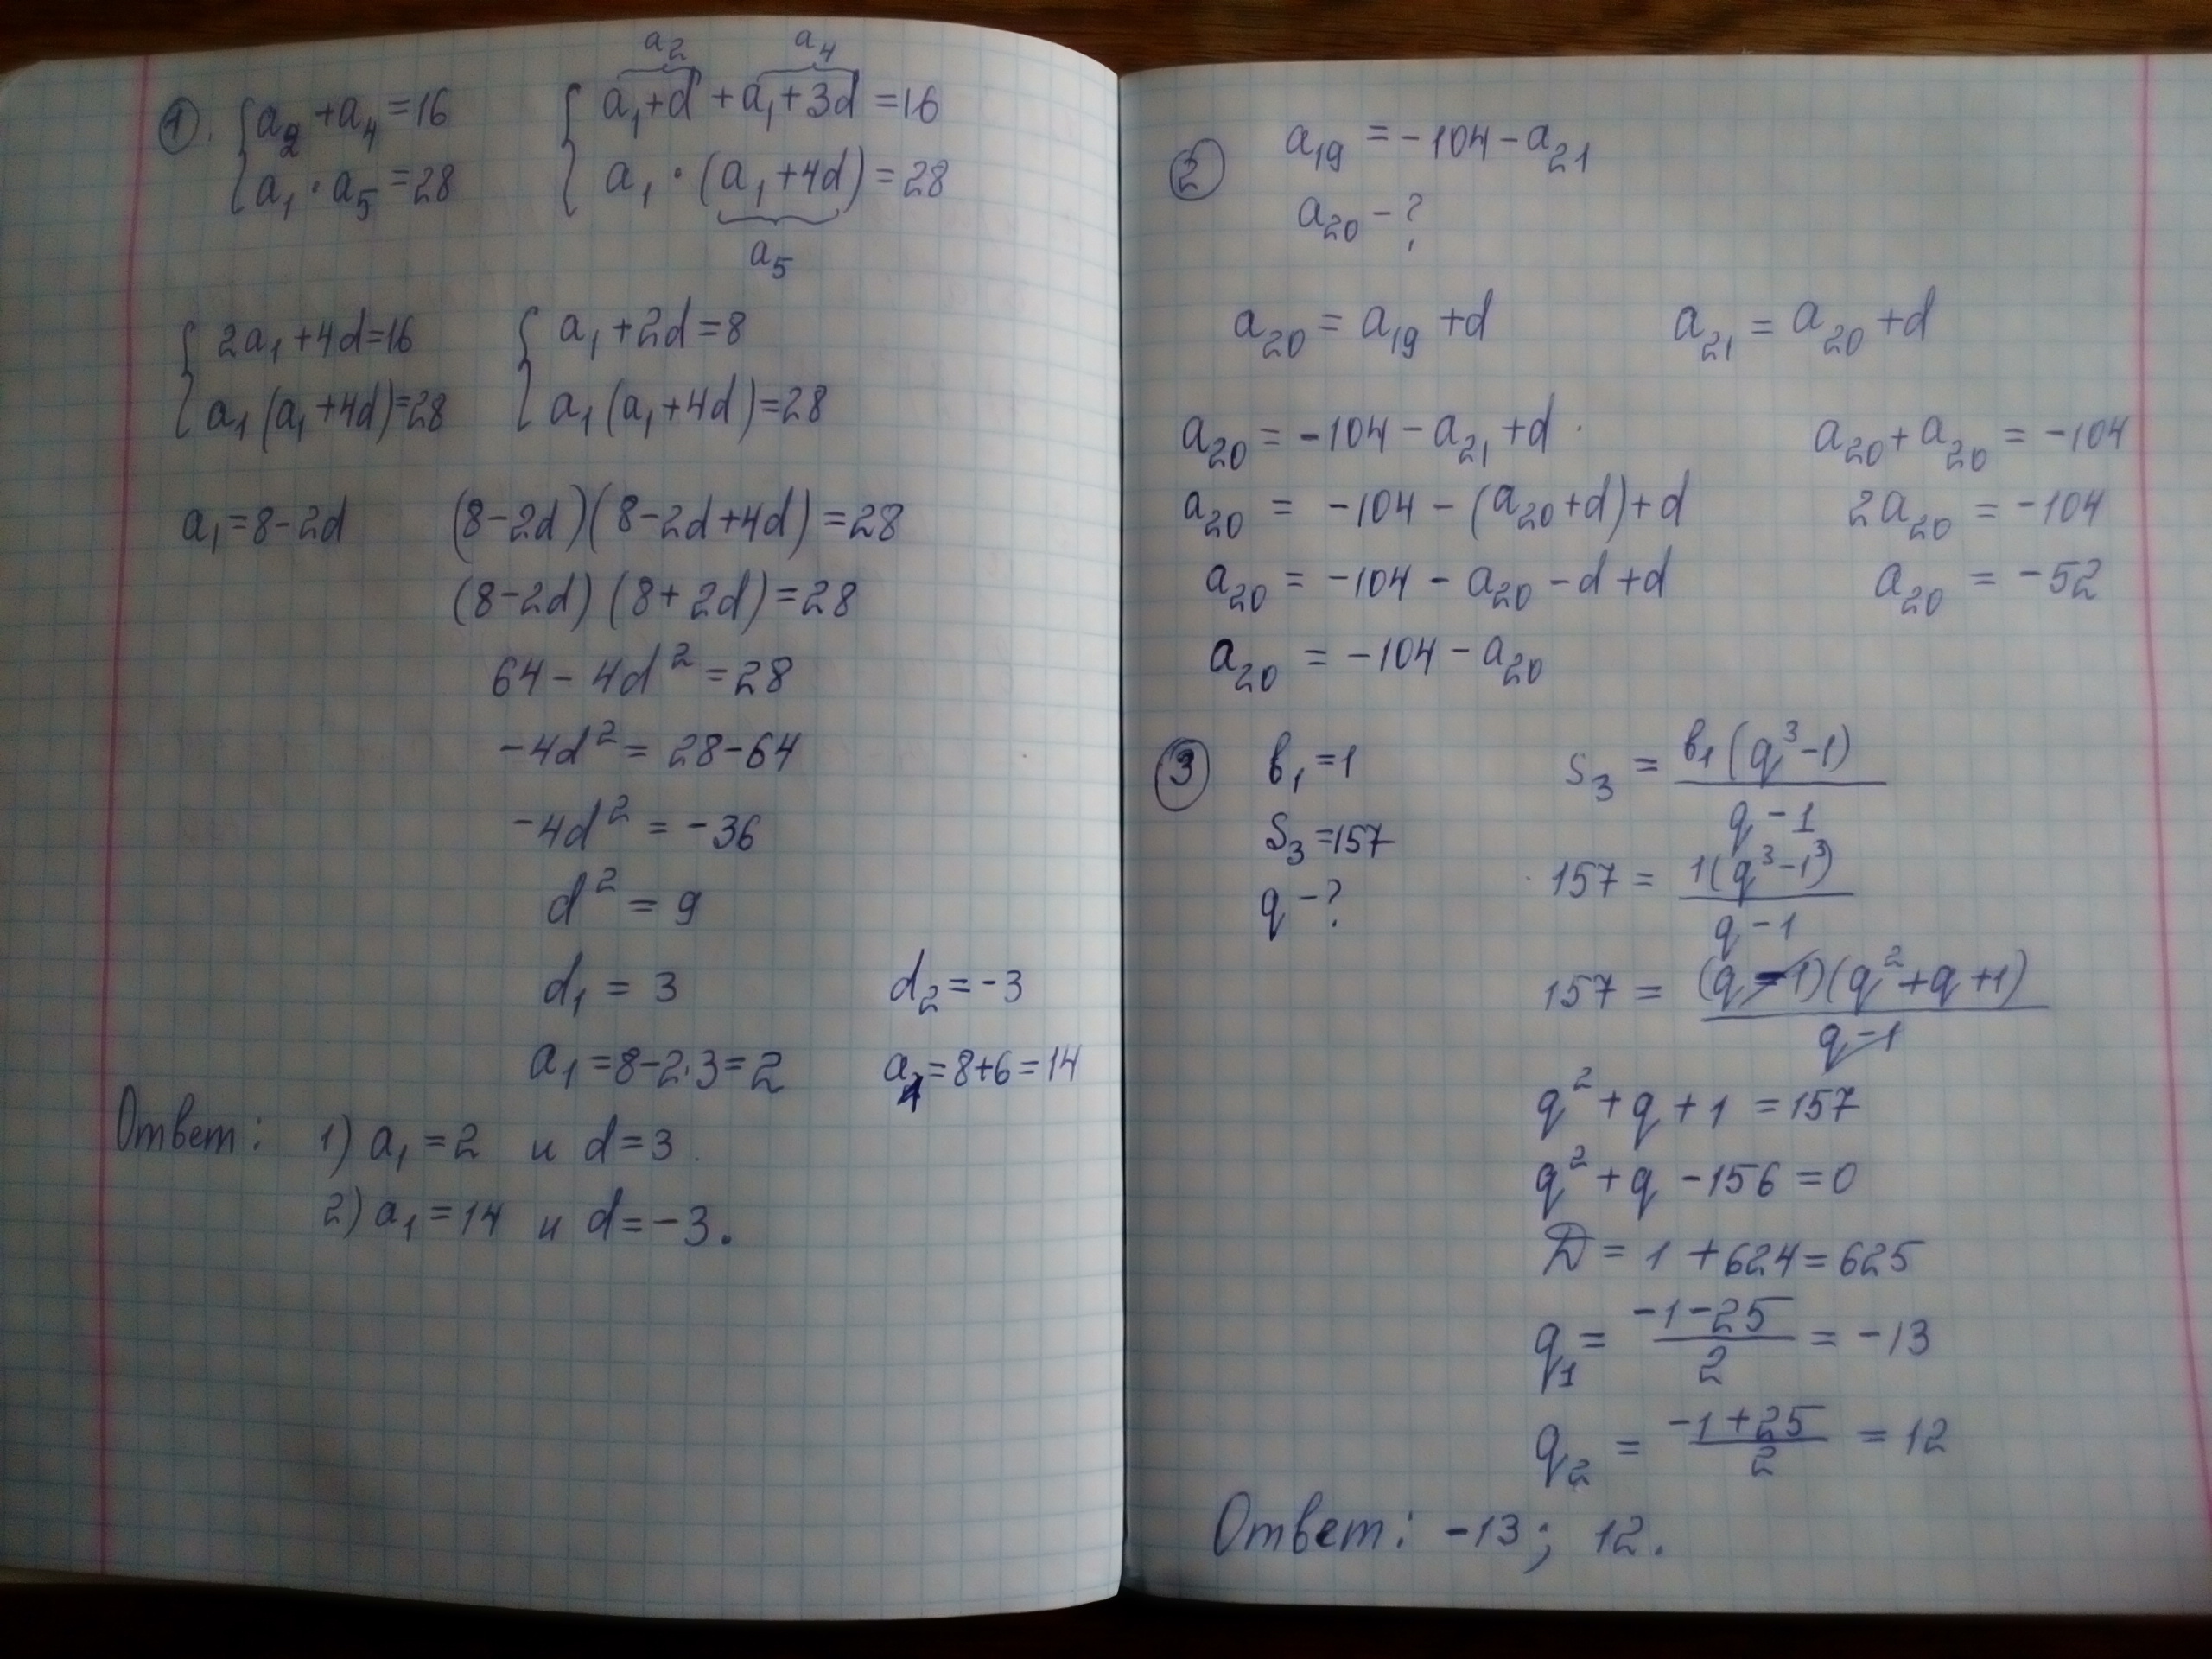 a₂ a₄
① . { a₂ + a₄ = 16 { a₁+d + a₁+3d = 16
a₁ · a₅ = 28 a₁ · (a₁+4d) = 28
a₅
{ 2a₁+4d=16 { a₁+2d=8
a₁(a₁+4d)=28 a₁(a₁+4d)=28
a₁=8-2d (8-2d)(8-2d+4d)=28
(8-2d)(8+2d)=28
64-4d²=28
-4d²=28-64
-4d²=-36
d²=9
d₁=3 d₂=-3
a₁=8-2·3=2 a₁=8+6=14
Ответ: 1) a₁=2 и d=3.
2) a₁=14 и d=-3.
② a₁₉ = -104 - a₂₁
a₂₀ - ?
a₂₀ = a₁₉ + d a₂₁ = a₂₀ + d
a₂₀ = -104 - a₂₁ + d a₂₀ + a₂₀ = -104
a₂₀ = -104 - (a₂₀+d) + d 2a₂₀ = -104
a₂₀ = -104 - a₂₀ - d + d a₂₀ = -52
a₂₀ = -104 - a₂₀
③ в₁ = 1 S₃ = в₁(q³-1)
q-1
S₃ = 157
157 = 1(q³-1³)
q-1
q - ?
157 = (q-1)(q²+q+1)
q-1
q²+q+1=157
q²+q-156=0
D = 1+624=625
q₁ = -1-25 = -13
2
q₂ = -1+25 = 12
2
Ответ: -13; 12.